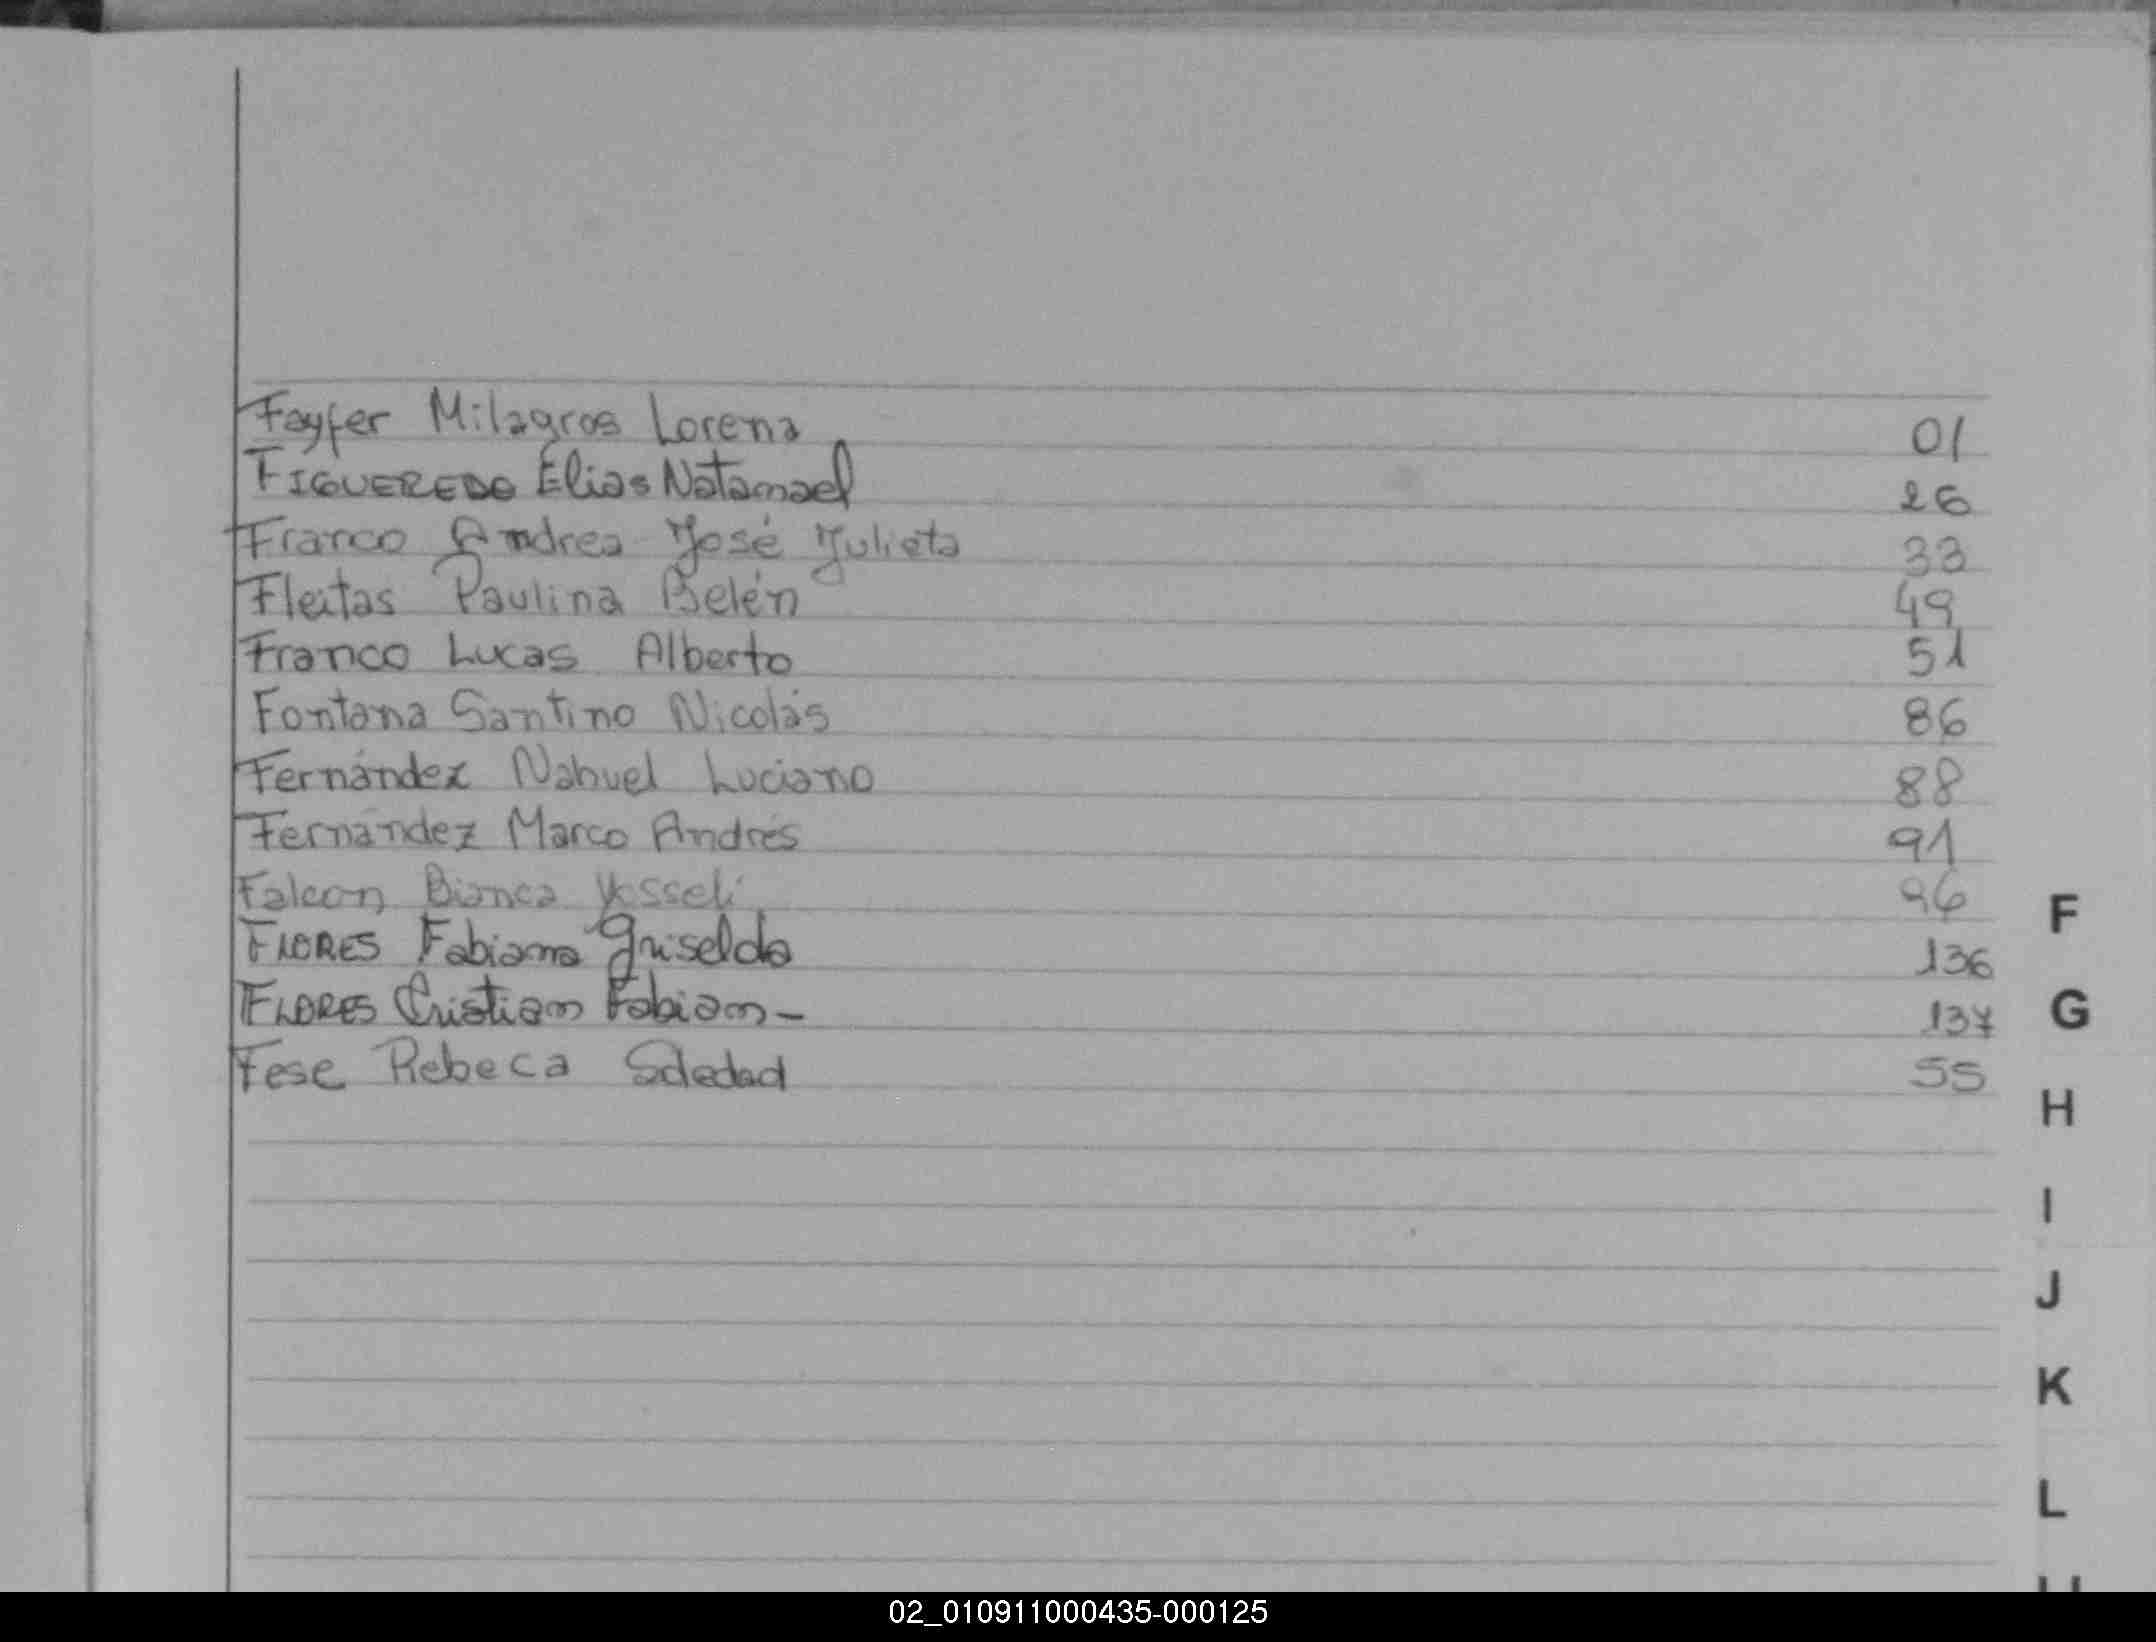 Feyfer Milagros Lorena 01
FIGUEREDO Elias Natanael 26
Franco Andrea José Julieta 33
Fleitas Paulina Belén 49
Franco Lucas Alberto 51
Fontana Santino Nicolás 86
Fernández Nahuel Luciano 88
Fernández Marco Andrés 91
Falcon Bianca Yosseli 96
F
FLORES Fabiana Griselda 136
FLORES Cristian Fabian- 137
G
Fese Rebeca Soledad 55
H
I
J
K
L
02_010911000435-000125